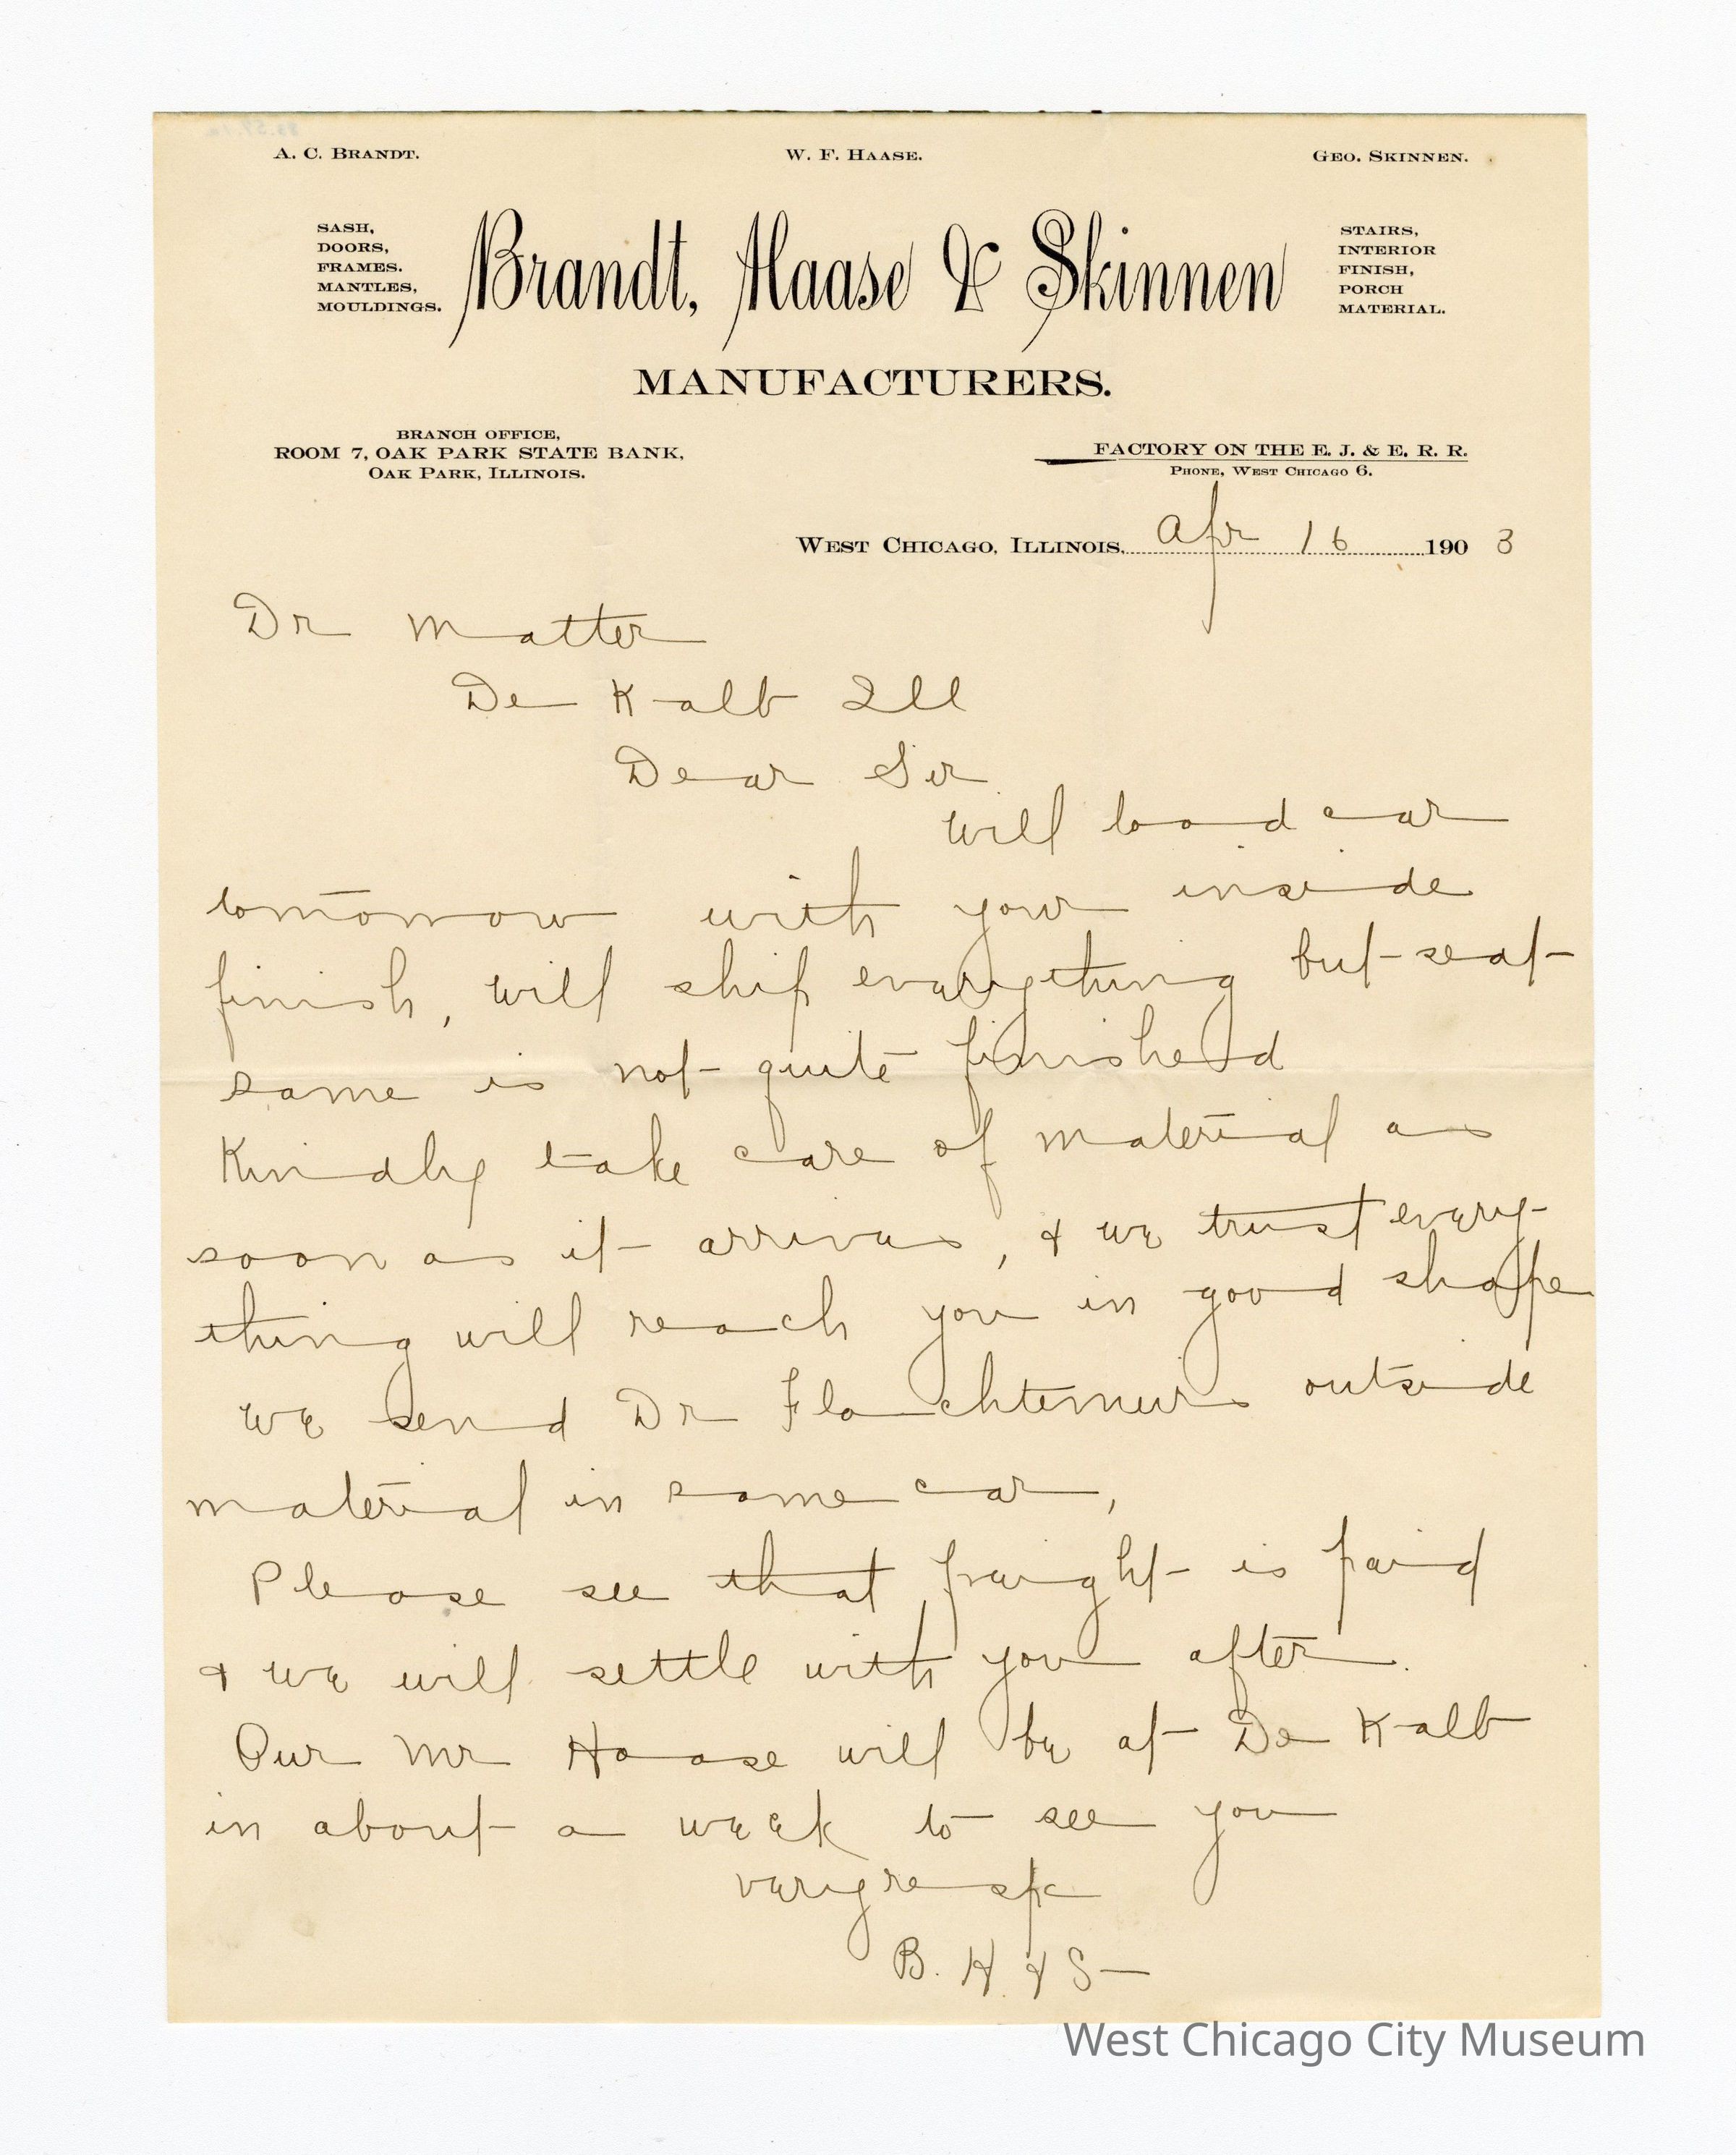 A. C. BRANDT. W. F. HAASE. GEO. SKINNEN.
SASH,
DOORS,
FRAMES.
MANTLES,
MOULDINGS.
Brandt, Haase & Skinnen
STAIRS,
INTERIOR
FINISH,
PORCH
MATERIAL.
MANUFACTURERS.
BRANCH OFFICE,
ROOM 7, OAK PARK STATE BANK,
OAK PARK, ILLINOIS.
FACTORY ON THE E. J. & E. R. R.
PHONE, WEST CHICAGO 6.
WEST CHICAGO, ILLINOIS, Apr 16 1903
Dr Matter
De Kalb Ill
Dear Sir
Will load car
tomorrow with your inside
finish, will ship everything but seat
same is not quite finished
Kindly take care of material as
soon as it arrives, & we trust every-
thing will reach you in good shape
we send Dr outside
material in same car,
Please see that freight is paid
& we will settle with you after.
Our Mr Haase will be at De Kalb
in about a week to see you
very resp
B. H & S
West Chicago City Museum